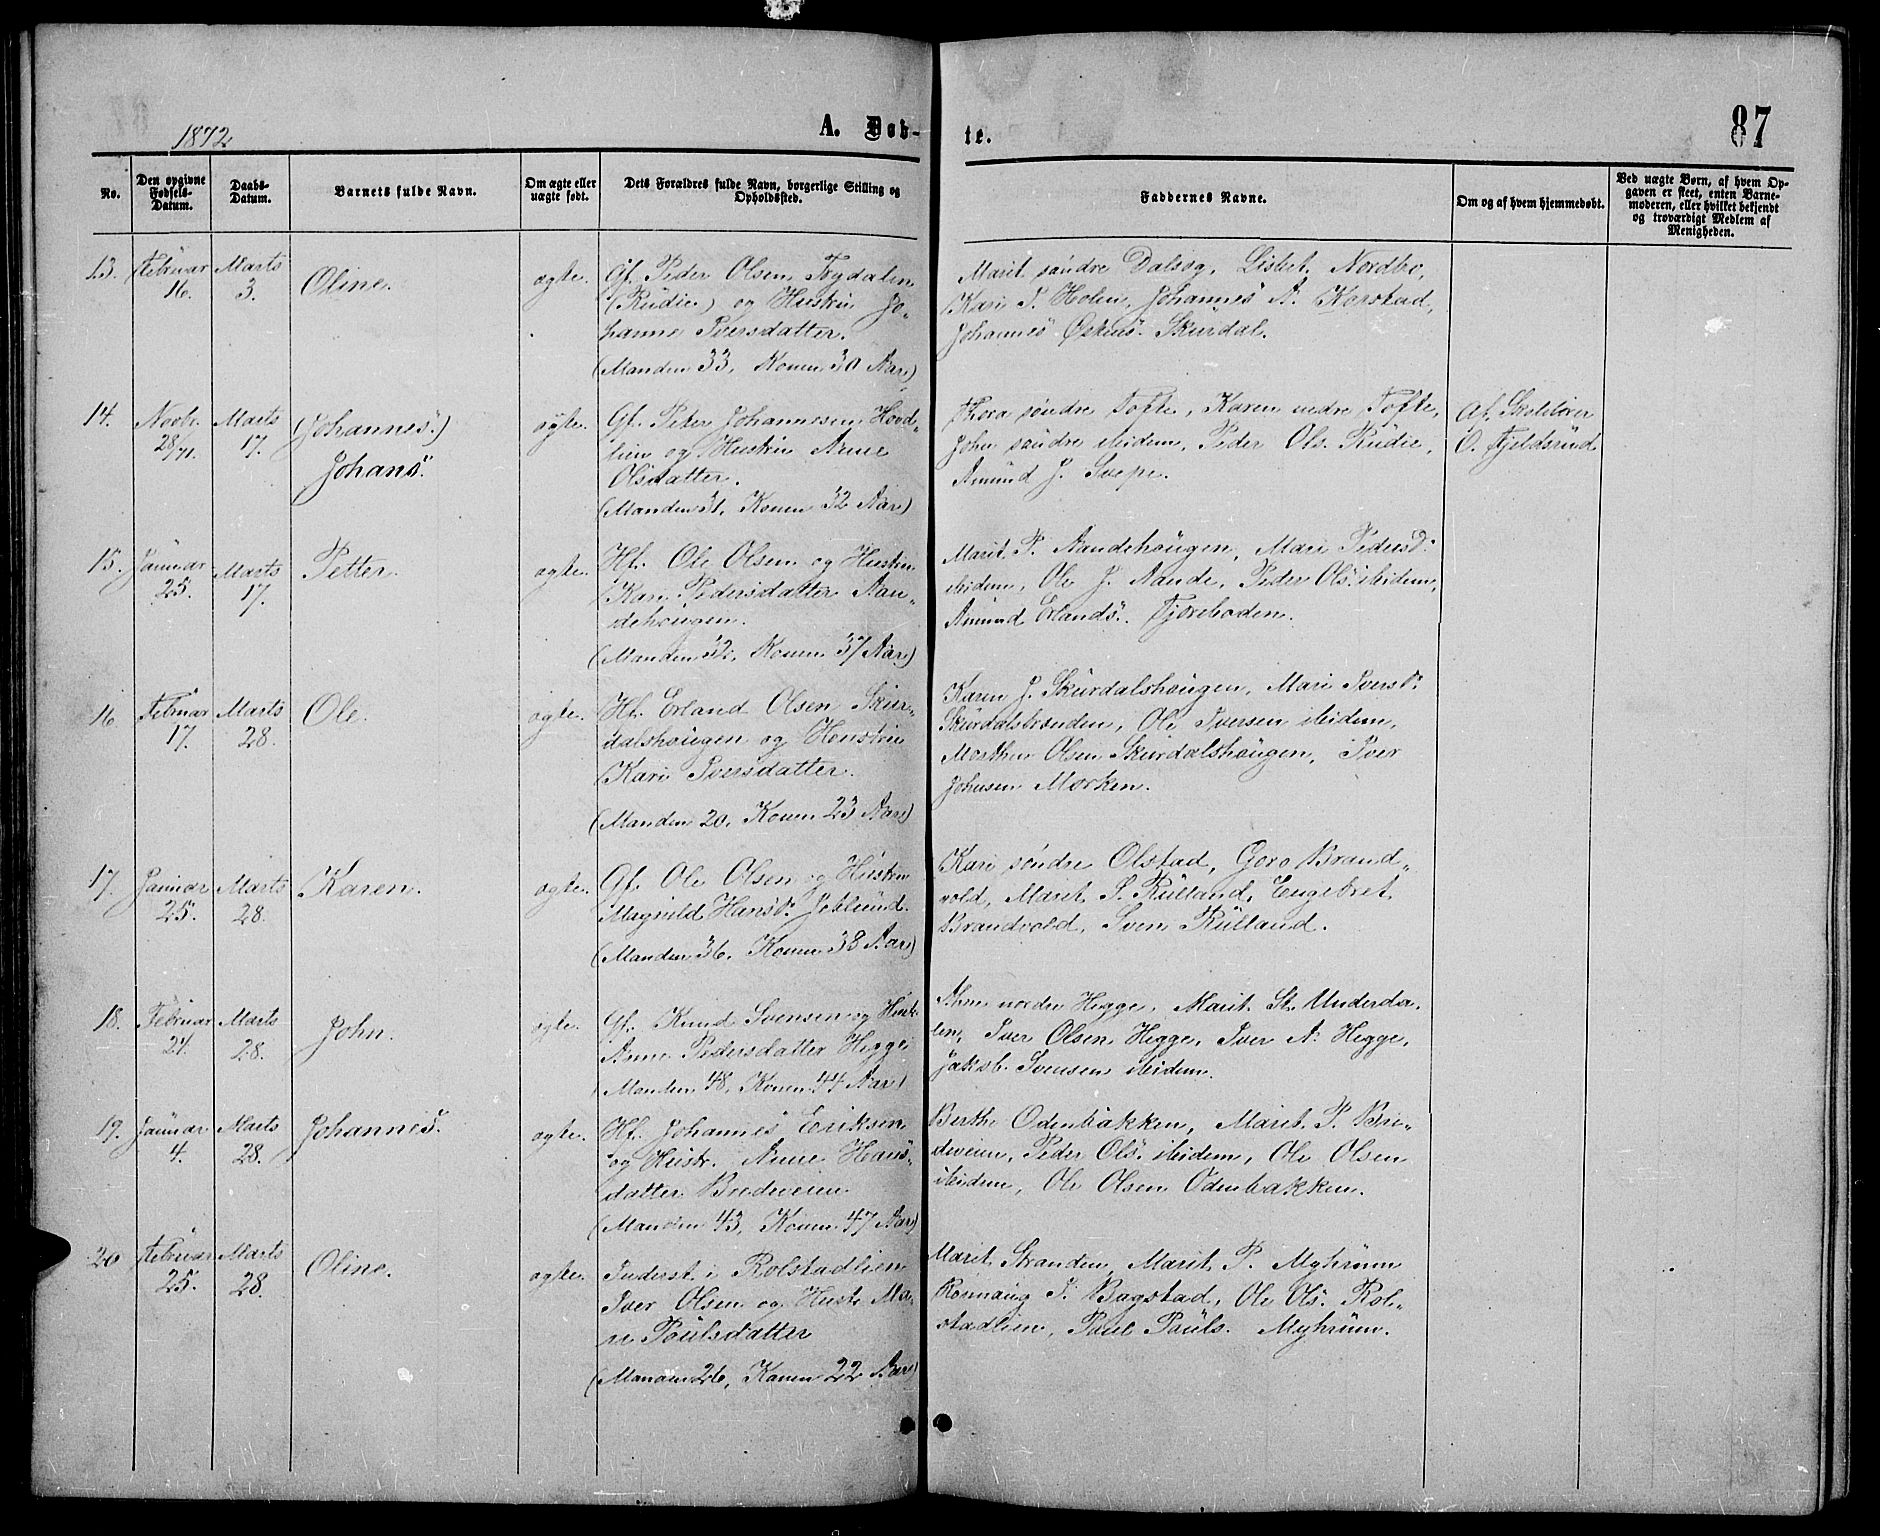 1872
A. Døb-
te.
87
No.
Den opgivne Fødsels-Datum.
Daabs-Datum.
Barnets fulde Navn.
Om ægte eller uægte født.
Dets Forældres fulde Navn, borgerlige Stilling og Opholdssted.
Faddernes Navne.
Om og af hvem hjemmedøbt.
Ved uægte Børn, af hvem Op-
gaven er skeet, enten Barne-
moderen, eller hvilket bekjendt
og troværdigt Medlem af
Menigheden.
13. Februar 16. Marts 3. Oline. ægte.
Gf. Peder Olsen
(Rudie) og Hustru Jo-
hanne Iversdatter.
(Manden 33, Konen 30 Aar)
Marit søndre Dalsøg, Lisbet Nordbo,
Kari P. Holen, Johannes A. Korstad,
Johannes Skurdal.
14. Novbr. 28/71. Marts 17. (Johannes.)
Johans. ægte.
Gf. Peter Johannesen Hovd-
lien og Hustru Anne
Olsdatter.
(Manden 31, Konen 32 Aar)
Thora søndre Tofte, Karen nedre Tofte,
John søndre ibidem, Peder Ols. Rudie,
Amund J. Svepe.
Af Skolelærer
O. Fjeldsrud
15. Januar 25. Marts 17. Petter. ægte.
Hf. Ole Olsen og Hustru
Kari Pedersdatter Aan-
dehougen.
(Manden 32, Konen 37 Aar)
Marit P. Aandehougen, Mari Pedersd.
ibidem, Ole J. Aande, Peder Ols. ibidem,
Amund Erlands. Fjoreboden.
16 Februar 17. Marts 28. Ole. ægte.
Hf. Erland Olsen Skur-
dalshougen og Houstru
Kari Iversdatter.
(Manden 20, Konen 23 Aar)
Karen J. Skurdalshougen, Mari Iversd.
Skurdalsbrænden, Ole Iversen ibidem,
Morthen Olsen Skurdalshougen, Iver
Johnsen Morken.
17. Januar 25. Marts 28. Karen. ægte.
Gf. Ole Olsen og Hustru
Magnild Hansd. Jetlund.
(Manden 36, Konen 38 Aar)
Kari søndre Olstad, Goro Brand-
vold, Marit S. Rulland, Engebret
Brandvold, Sven Rulland.
18. Februar 24. Marts 28. John. ægte.
Gf. Knud Svensen og Hust.
Anne Pedersdatter Hegge
(Manden 48, Konen 44 Aar)
Anne nordre Hegge, Marit St. Underda-
len, Iver Olsen Hegge, Iver A. Hegge,
Jakob Svensen ibidem.
19. Januar 4. Marts 28. Johannes. ægte.
Hf. Johannes Eriksen
og Hustr. Anne Hans-
datter Bredeveien.
(Manden 43, Konen 47 Aar)
Berthe Odenbakken, Marit P. Bre-
deveien, Peder Ols. ibidem, Ole Olsen
ibidem, Ole Olsen Odenbakken.
20 Februar 25. Marts 28. Oline. ægte.
Inderst i Rolstadlien
Iver Olsen og Hustr. Ma-
ri Poulsdatter
(Manden 26, Konen 22 Aar)
Marit Stranden, Marit P. Myhrum
Rønnaug T. Bagstad, Ole Ols. Rol-
stadlien, Poul Pouls. Myhrum.